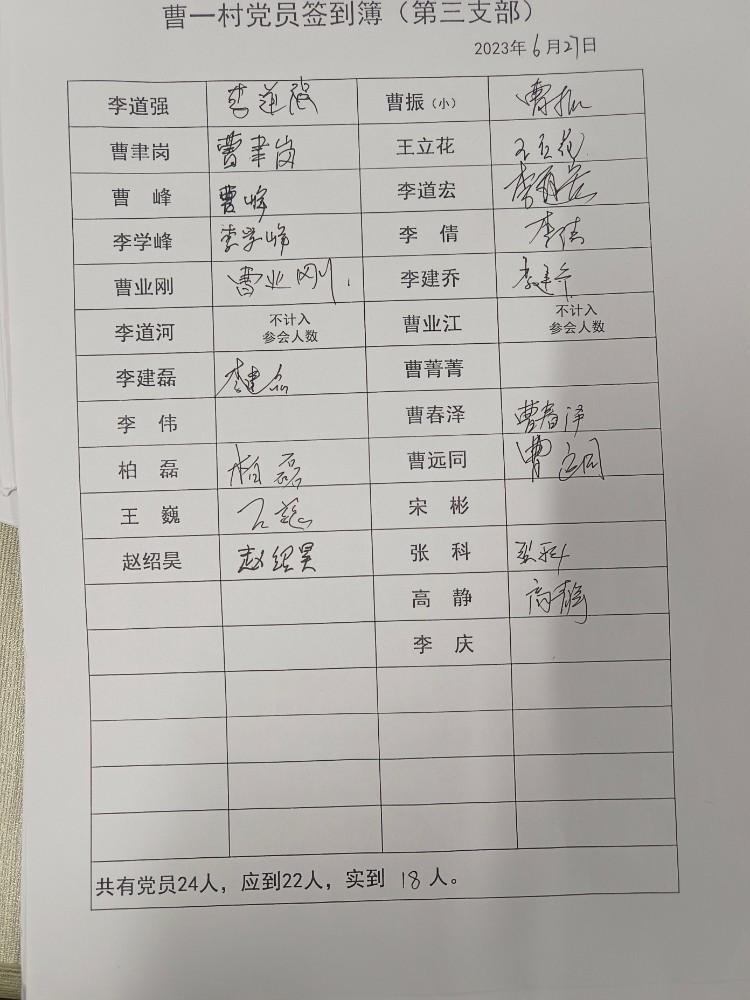 曹一村党员签到簿（第三支部）
2023年6月27日
李道强 李道强 曹振（小） 曹振
曹聿岗 曹聿岗 王立花 王立花
曹 峰 曹峰 李道宏 李道宏
李学峰 李学峰 李 倩 李倩
曹业刚 曹业刚 李建乔 李建乔
李道河 不计入 曹业江 不计入
参会人数 参会人数
李建磊 李建磊 曹菁菁
李 伟 曹春泽 曹春泽
柏 磊 柏磊 曹远同 曹远同
王 巍 王巍 宋 彬
赵绍昊 赵绍昊 张 科 张科
高 静 高静
李 庆
共有党员24人，应到22人，实到 18 人。